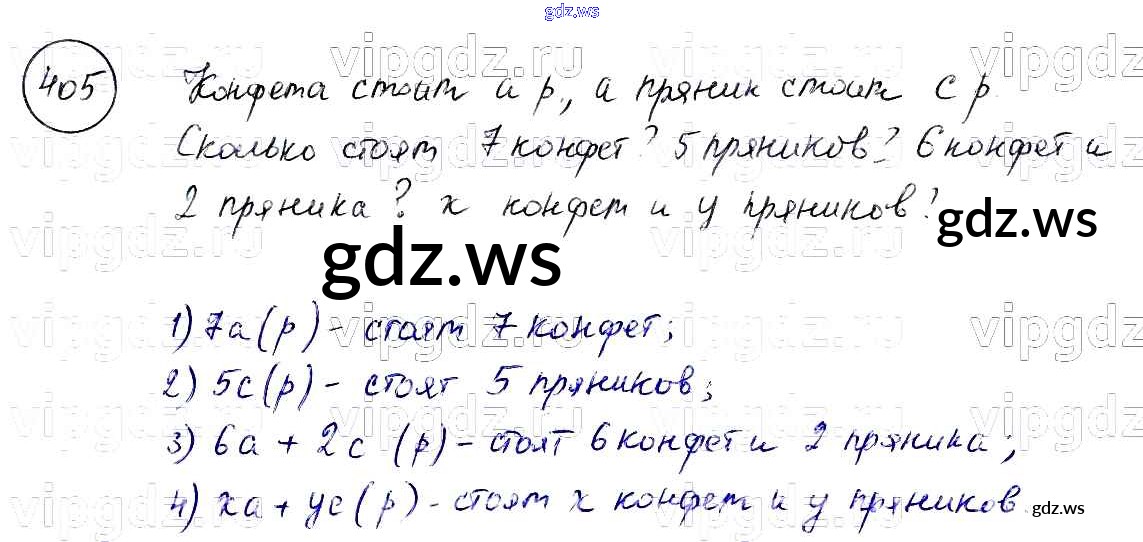 gdz.ws
405
Конфета стоит а р., а пряник стоит с р
Сколько стоят 7 конфет? 5 пряников? 6 конфет и
2 пряника? х конфет и у пряников?
gdz.ws
gdz.ws
1) 7а (р) - стоят 7 конфет;
2) 5с (р) - стоят 5 пряников;
3) 6а + 2с (р) - стоят 6 конфет и 2 пряника;
4) ха + ус (р) - стоят х конфет и у пряников.
gdz.ws
vipgdz.ru